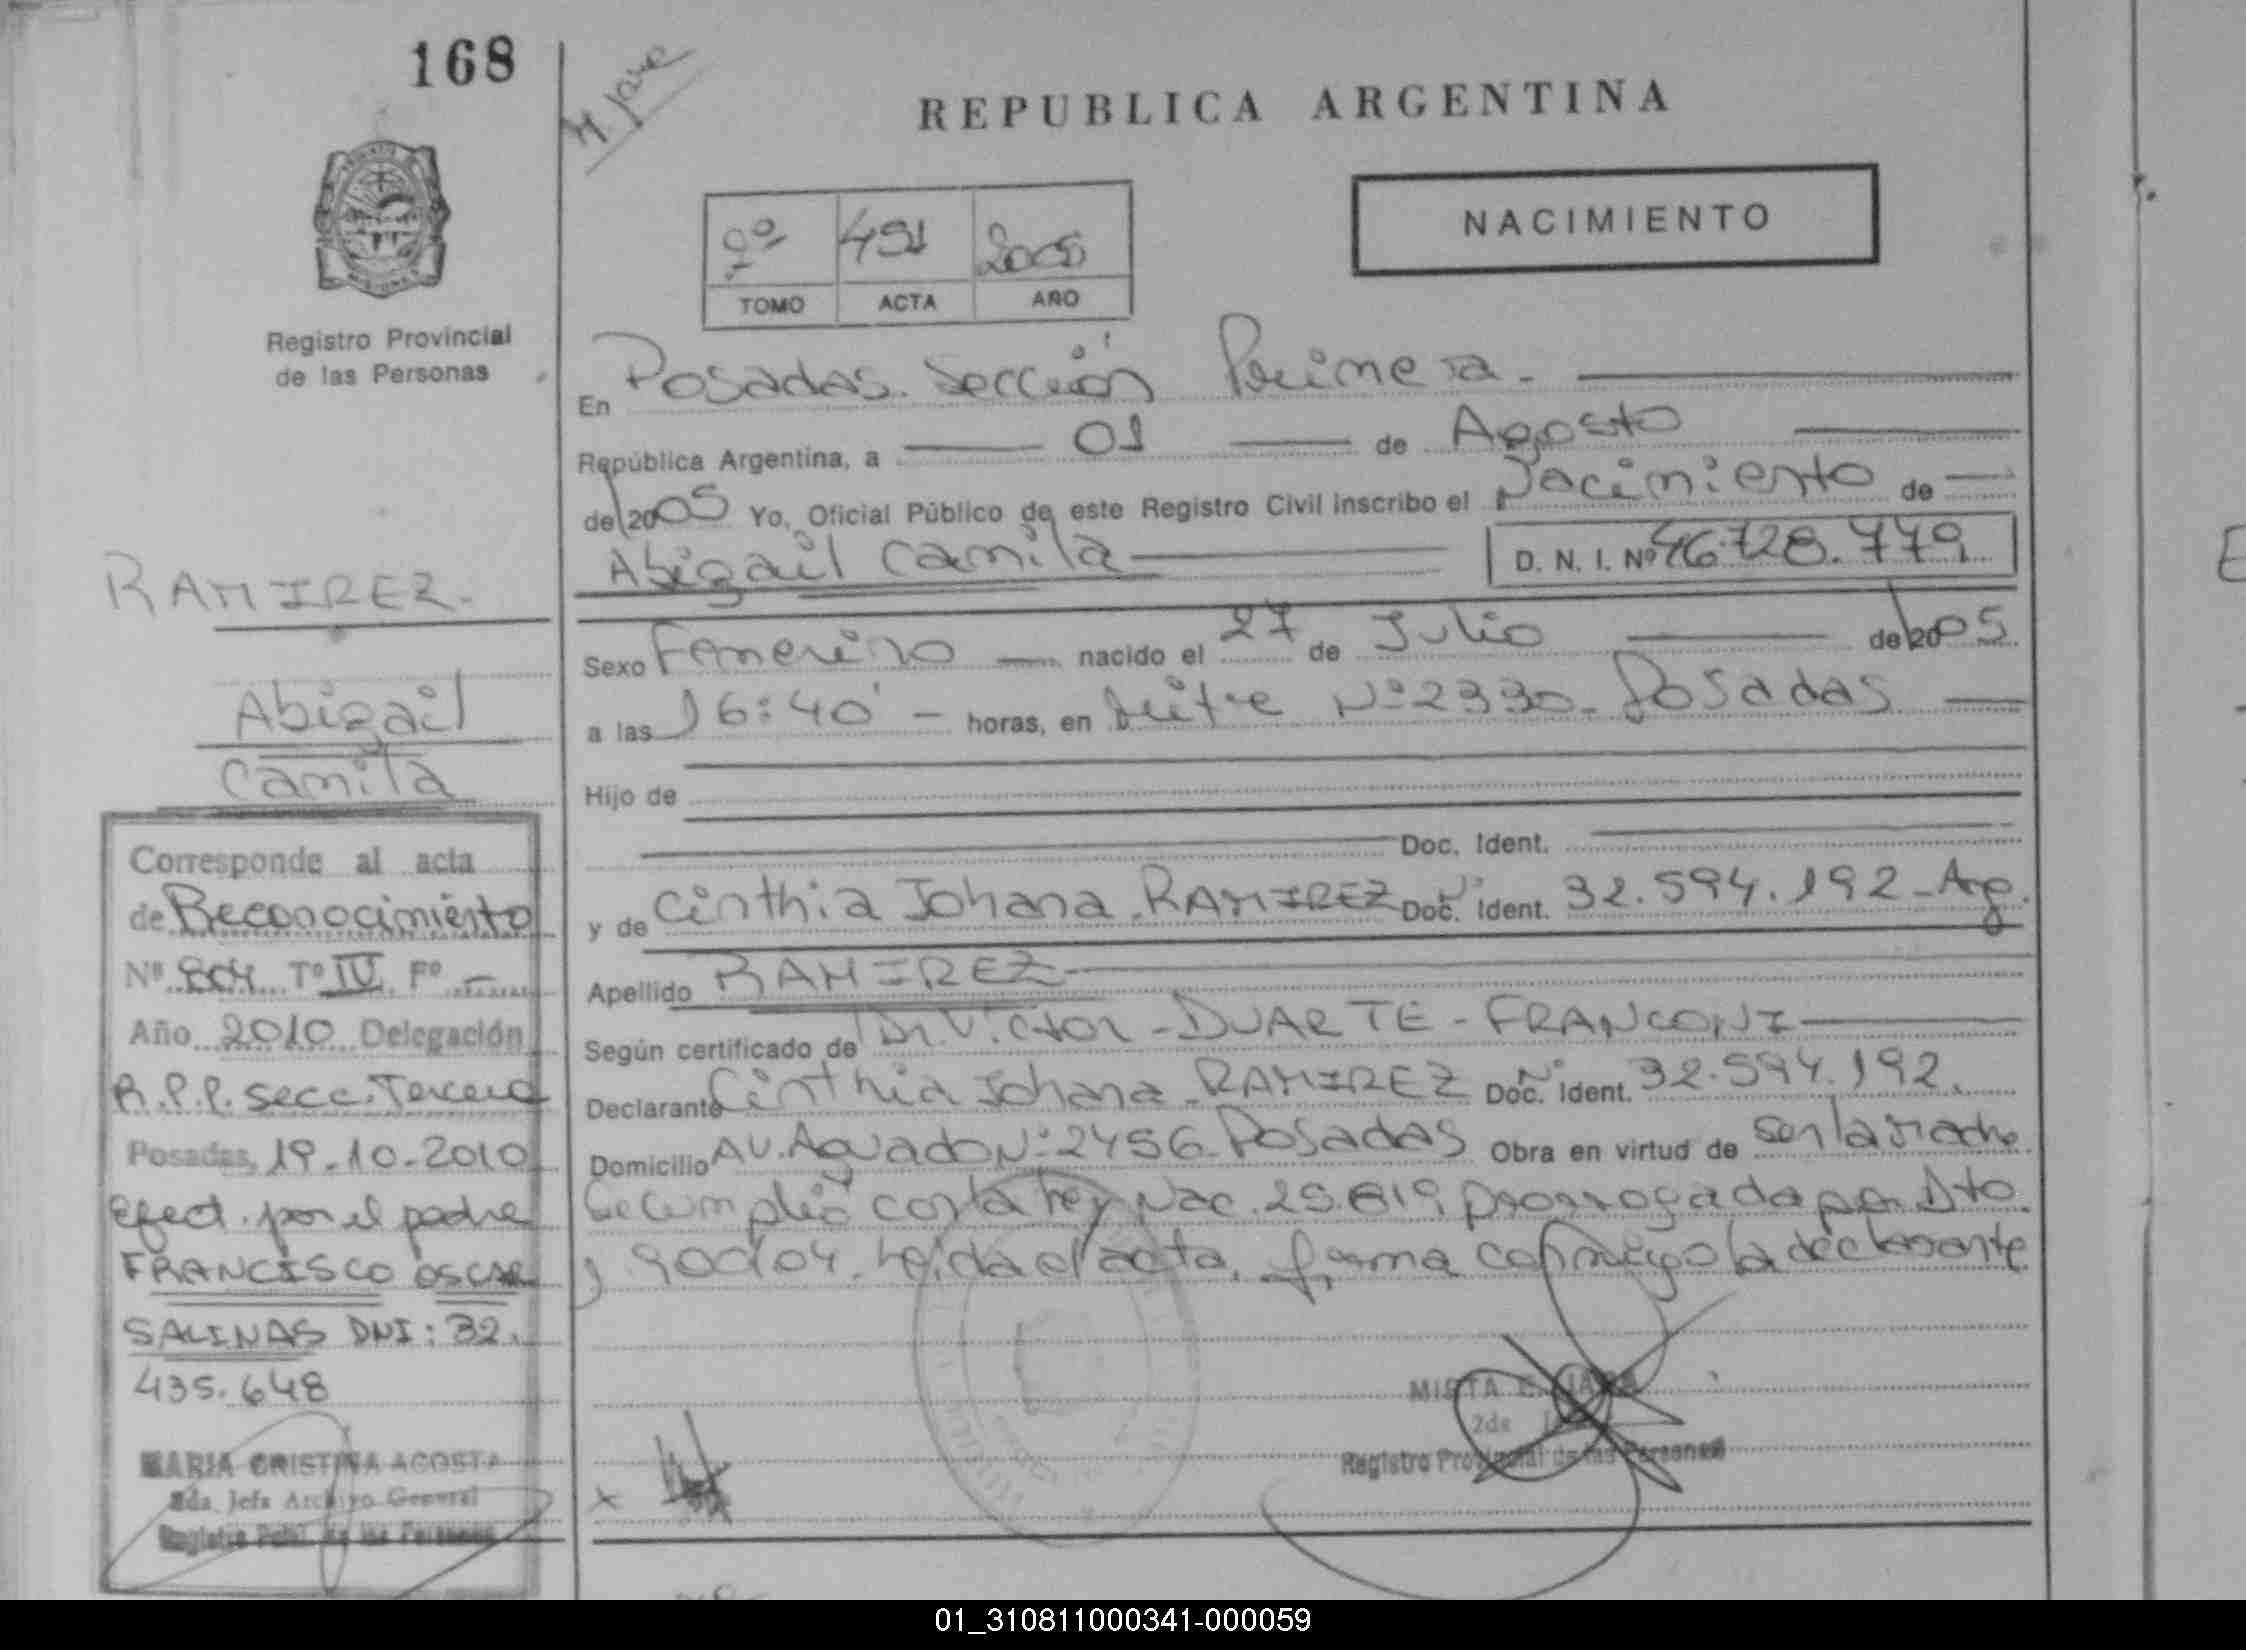 168
REPUBLICA ARGENTINA
NACIMIENTO
2º 491 2005
TOMO ACTA AÑO
Registro Provincial
de las Personas
En Posadas. Sección Primera.
República Argentina, a 01 de Agosto
de 2005 Yo, Oficial Público de este Registro Civil inscribo el Nacimiento de
Abigail Camila D. N. I. Nº 46.728.779
Sexo Femenino nacido el 27 de Julio de 2005
a las 16:40' - horas, en Mitre Nº 2330. Posadas
Hijo de
Doc. Ident.
y de Cinthia Johana RAMIREZ Doc. Ident. Nº 32.594.192 - Arg.
Apellido RAMIREZ
Según certificado de Dr. Victor - DUARTE - FRANCONI
Declarante Cinthia Johana RAMIREZ Doc. Ident. Nº 32.594.192.
Domicilio AV. Aguado Nº 2456 Posadas Obra en virtud de ser la madre
Se cumplió con la Ley Nac. 25.819 prorrogada por Dto.
900/04. Leída el acta, firma conmigo la declarante
MIRTA E.
2da
Registro Provincial de las Personas
RAMIREZ.
Abigail
Camila
Corresponde al acta
de Reconocimiento
Nº 804 Tº IV Fº -
Año 2010 Delegación
R.P.P. Secc. Tercera
Posadas, 19.10.2010
Efect. por el padre
FRANCISCO OSCAR
SALINAS DNI: 32.
435.648
MARIA CRISTINA ACOSTA
2da Jefa Archivo General
Registro Pcial. de las Personas
01_310811000341-000059